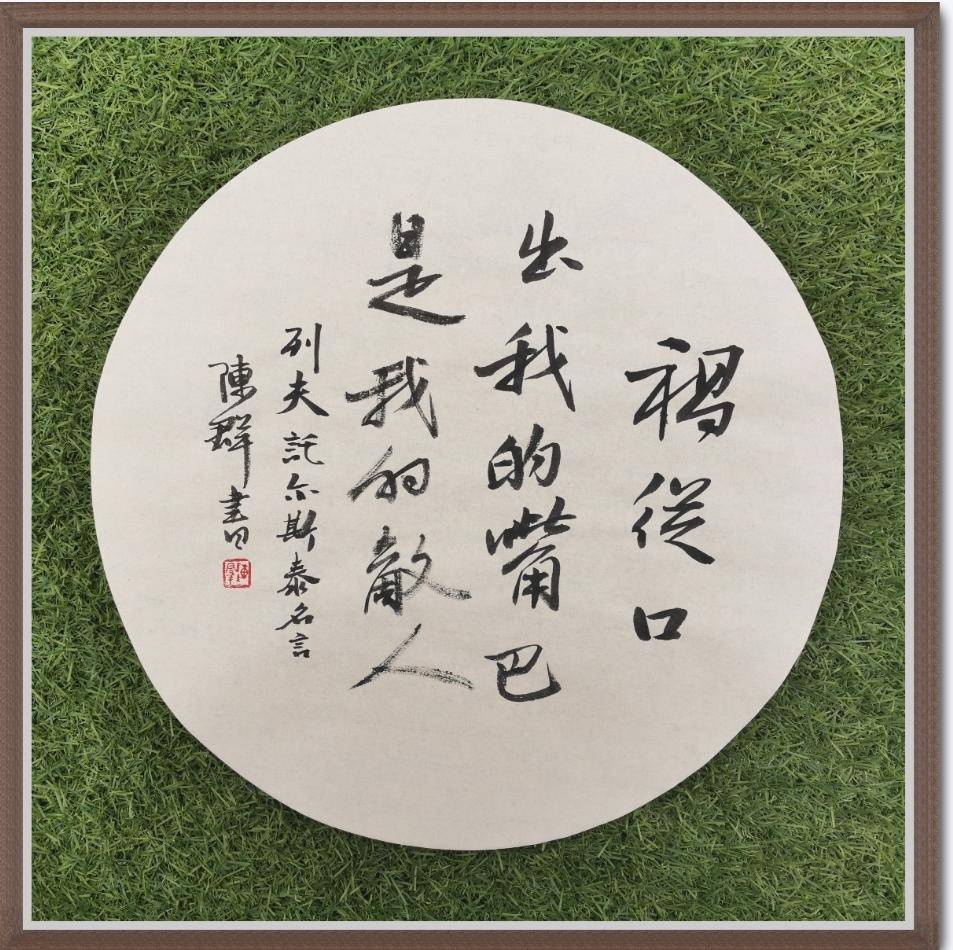 禍從口
出我的嘴巴
是我的敵人
列夫託尔斯泰名言
陳群書